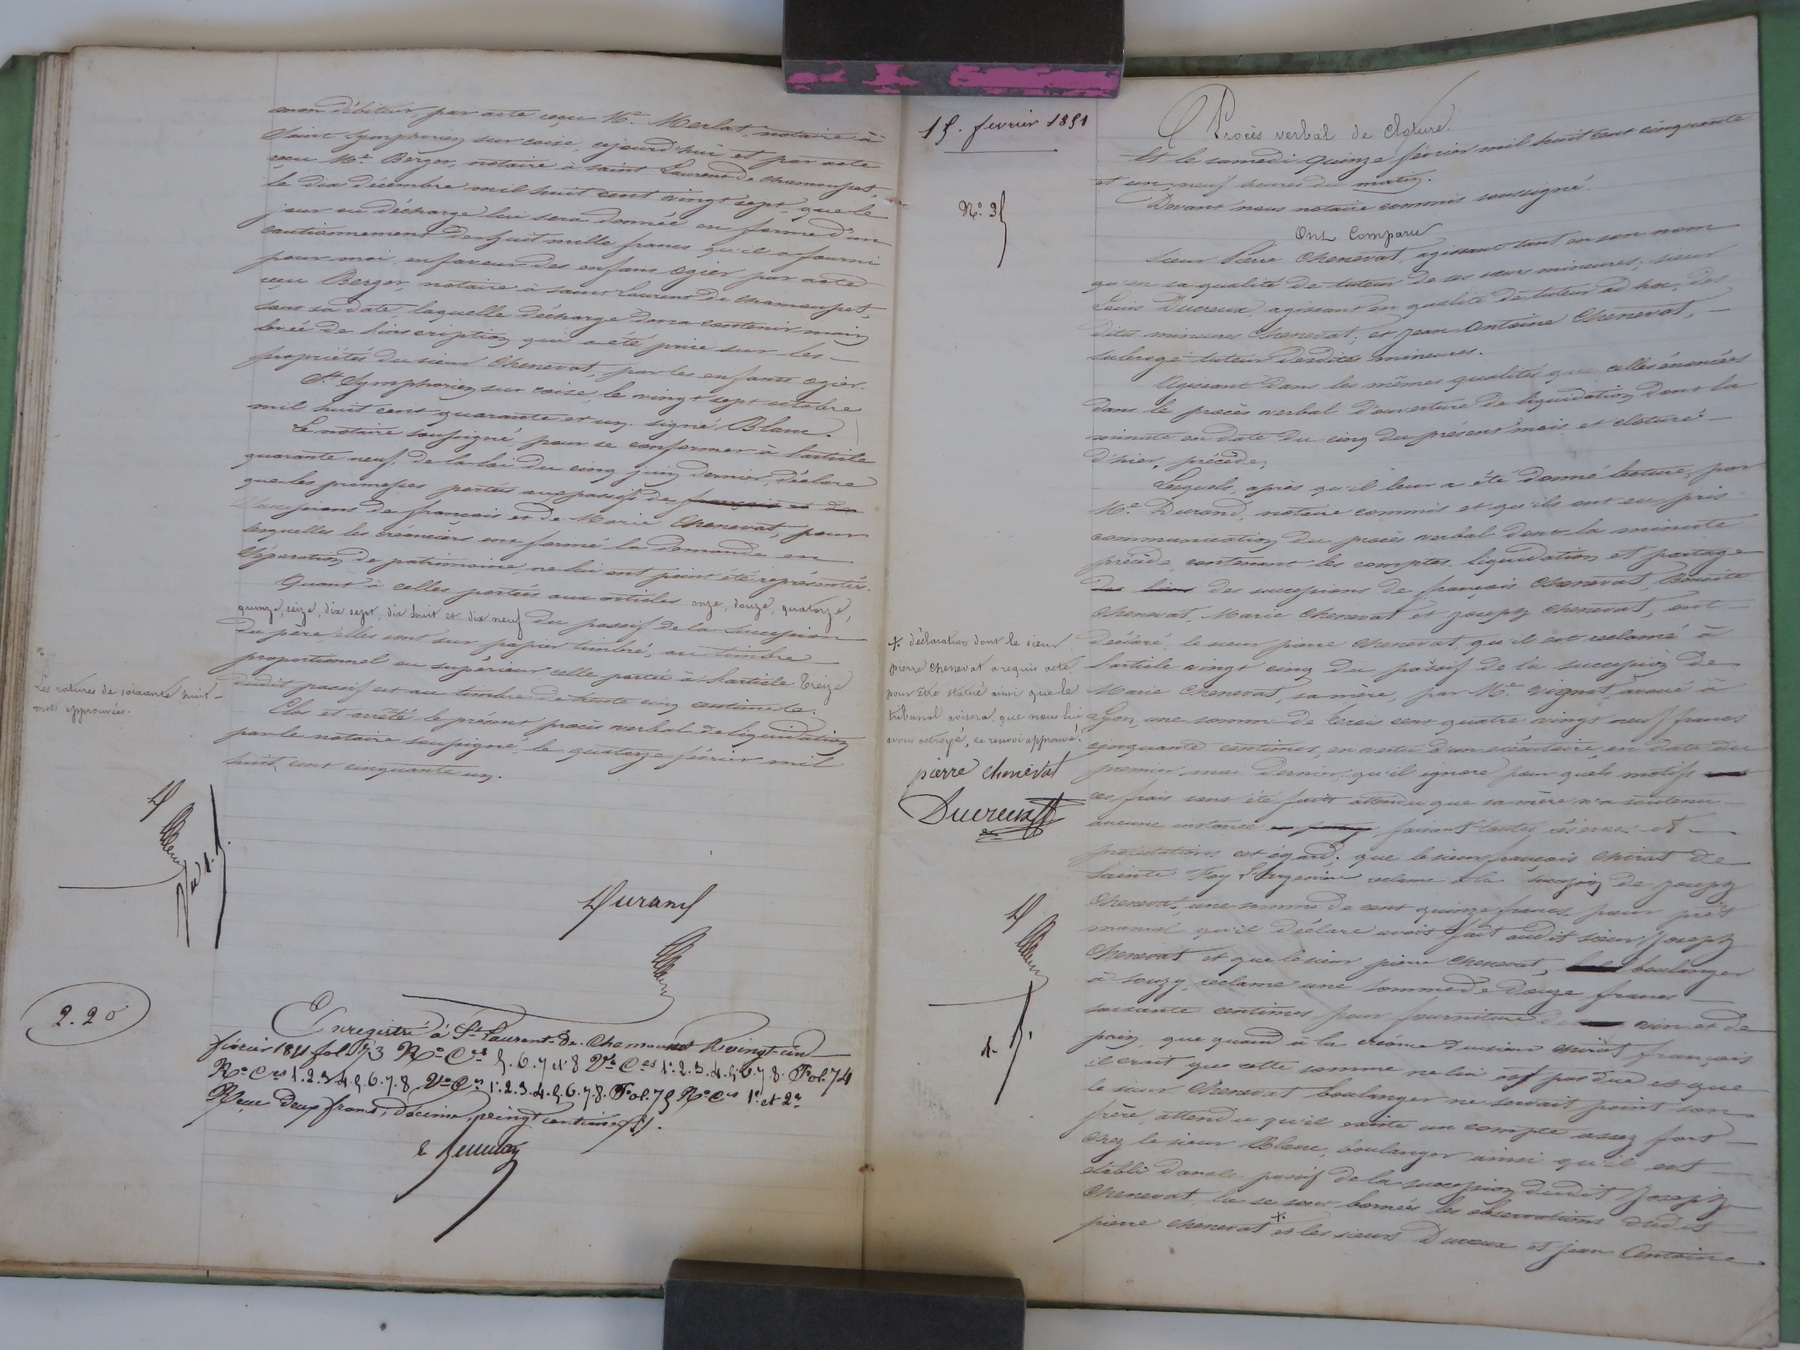 mon débiteur, par acte reçu Me. Merlat, notaire à
Saint Symphorien sur coise, cejourd'hui et par acte
reçu Me. Berger, notaire à Saint Laurent de chamousset,
le dix décembre mil huit cent vingt sept, que le
jour où décharge lui sera donnée en forme d'un
cautionnement de huit mille francs qu'il a fourni
pour moi en faveur des enfans Ogier par acte
reçu Berger, notaire à Saint Laurent de chamousset,
sous sa date, laquelle décharge devra contenir main
levée de l'inscription qui a été prise sur les
propriétés du sieur Chenevat, par les enfants Ogier.
St. Symphorien sur coise, le vingt sept octobre
mil huit cent quarante et un. signé, Blanc.
Le notaire soussigné, pour se conformer à l'article
quarante neuf de la loi du cinq juin dernier, déclare
que les promesses portées aux passifs des françois et de
successions de francois et de Marie Chenevat, pour
lesquelles les créanciers ont formé la demande en
séparation de patrimoine, ne lui ont point été représentés.
Quant à celles portées aux articles onze, douze, quatorze,
quinze, seize, dix sept, dix huit et dix neuf du passif de la succession
du père elles sont sur papier timbré, au timbre
proportionnel ou supérieur celle portée à l'article treize
dudit passif est au timbre de trente cinq centimes.
Clos et arrêté le présent procès verbal de liquidation
par le notaire soussigné le quatorze février mil
huit cent cinquante un.
Les ratures de soixante huit
mot approuvées.
Durand
2.20
Enregistré à St. Laurent de Chamousset le vingt un
février 1851 fol. 73 Ro Ces 5.6.7 et 8 Vo Ces 1.2.3.4.5.6.7.8. Fol. 74
Ro Ces 1.2.3.4.5.6.7.8. Vo Ces 1.2.3.4.5.6.7.8. Fol. 75 Ro Ces 1. et 2.
Reçu deux francs, décime vingt centimes.
15. fevrier 1851
No. 35
Procès verbal de cloture.
Et le samedi quinze février mil huit cent cinquante
et un, neuf heures du matin.
Devant nous notaire commis soussigné
Ont Comparu
Sieur Pierre Chenevat, agissant tant en son nom
qu'en sa qualité de tuteur de ses sœurs mineures; sieur
Louis Ducreux, agissant en qualité de tuteur ad hoc, des
dites mineures Chenevat; et Jean Antoine Chenevat,
subrogé tuteur desdites mineures.
Agissant dans les mêmes qualités que celles énoncées
dans le procès verbal d'ouverture de liquidation dont la
minute en date du cinq du présent mois et cloturé
d'hier, précède,
Lesquels, après qu'il leur a été donné lecture, par
Me Durand, notaire commis et qu'ils ont eu pris
communication du procès verbal dont la minute
précède, contenant les comptes, liquidation et partage
des biens des successions de françois Chenevat, Benoite
Chenevat, Marie Chenevat et Joseph Chenevat, ont
déclaré, le sieur pierre Chenevat, qu'il est réclamé à
l'article vingt cinq du passif de la succession de
Marie Chenevat, sa mère, par Me. Vignat, avoué à
Lyon, une somme de trois cent quatre vingt neuf francs
cinquante centimes, en vertu d'un exécutoire en date du
premier mai dernier, qu'il ignore pour quels motifs
ces frais ont été faits attendu que sa mère n'a soutenu
aucune instance, faisant toutes réserves et
protestations à cet égard; que le sieur françois Chirat de
Sainte Foy l'Argentière réclame à la succession de Joseph
Chenevat, une somme de cent quinze francs, pour prêt
manuel qu'il déclare avoir fait audit sieur Joseph
Chenevat et que le sieur pierre Chenevat, boulanger
à Souzy, réclame une somme de douze francs
soixante centimes pour fourniture de vin et de
pain, que quand à la créance du sieur Chirat françois
il croit que cette somme ne lui est pas due et que
le sieur Chenevat boulanger ne servait point son
frère, attendu qu'il existe un compte assez fort
chez le sieur Blanc, boulanger ainsi qu'il est
établi dans le passif de la succession dudit Joseph
Chenevat, là se sont bornées les observations dudit
pierre Chenevat + et les sieurs Ducreux et Jean Antoine
+. déclaration dont le sieur
pierre Chenevat a requis acte
pour être statué ainsi que le
tribunal avisera, que nous lui
avons octroyé, ce renvoi approuvé.
pierre chenevat
Ducreux